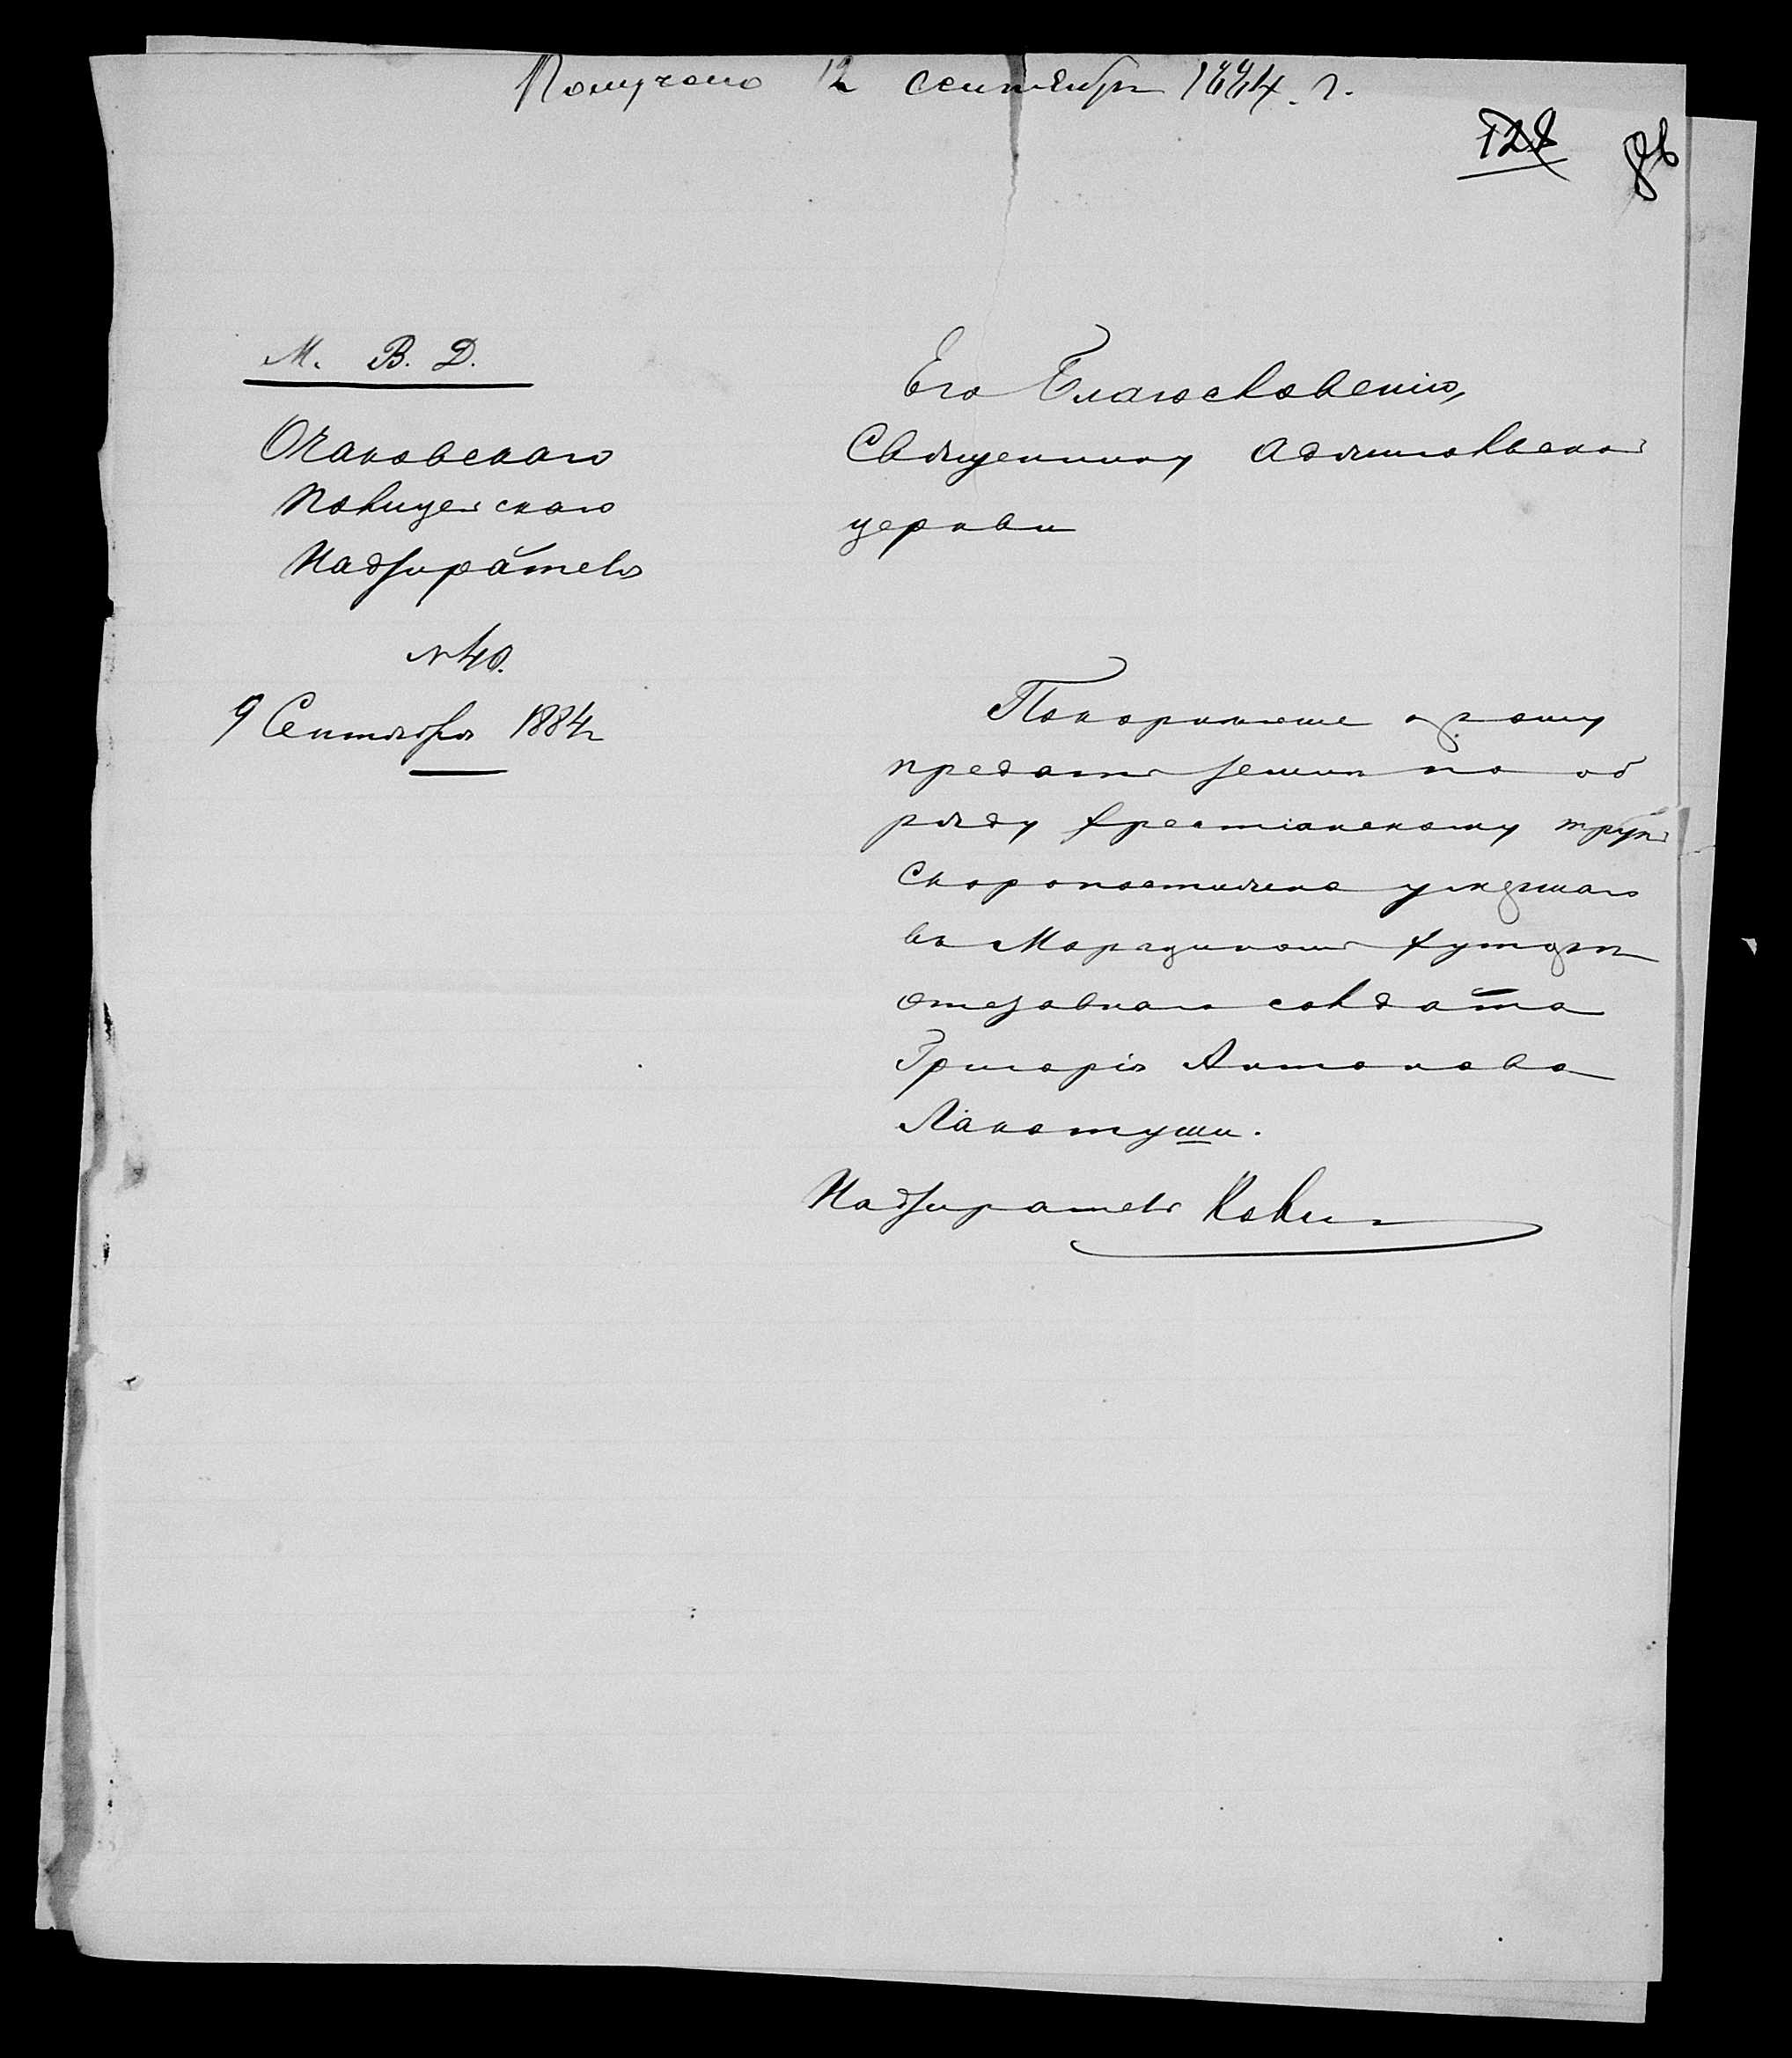 Получено 12 сентября 1884. г.
128 86
М. В. Д.
Очаковскаго
Полицейскаго
Надзирателя
№ 40.
9 Сентября 1884 г
Его Благословенію,
Священнику Аджигольской
церкви
Покорнейше прошу
предать земли по об
ряду хрестіанскому трупъ
Скоропостижно умершаго
въ хуторѣ
отставнаго солдата
Григорія Антонова
Лакотуши.
Надзиратель